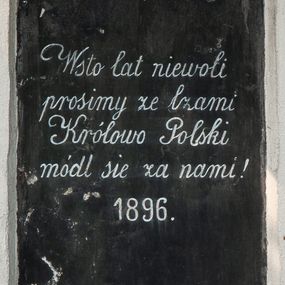 Wsto lat niewoli
prosimy ze łzami
Królowo Polski
módl sie za nami!
1896.